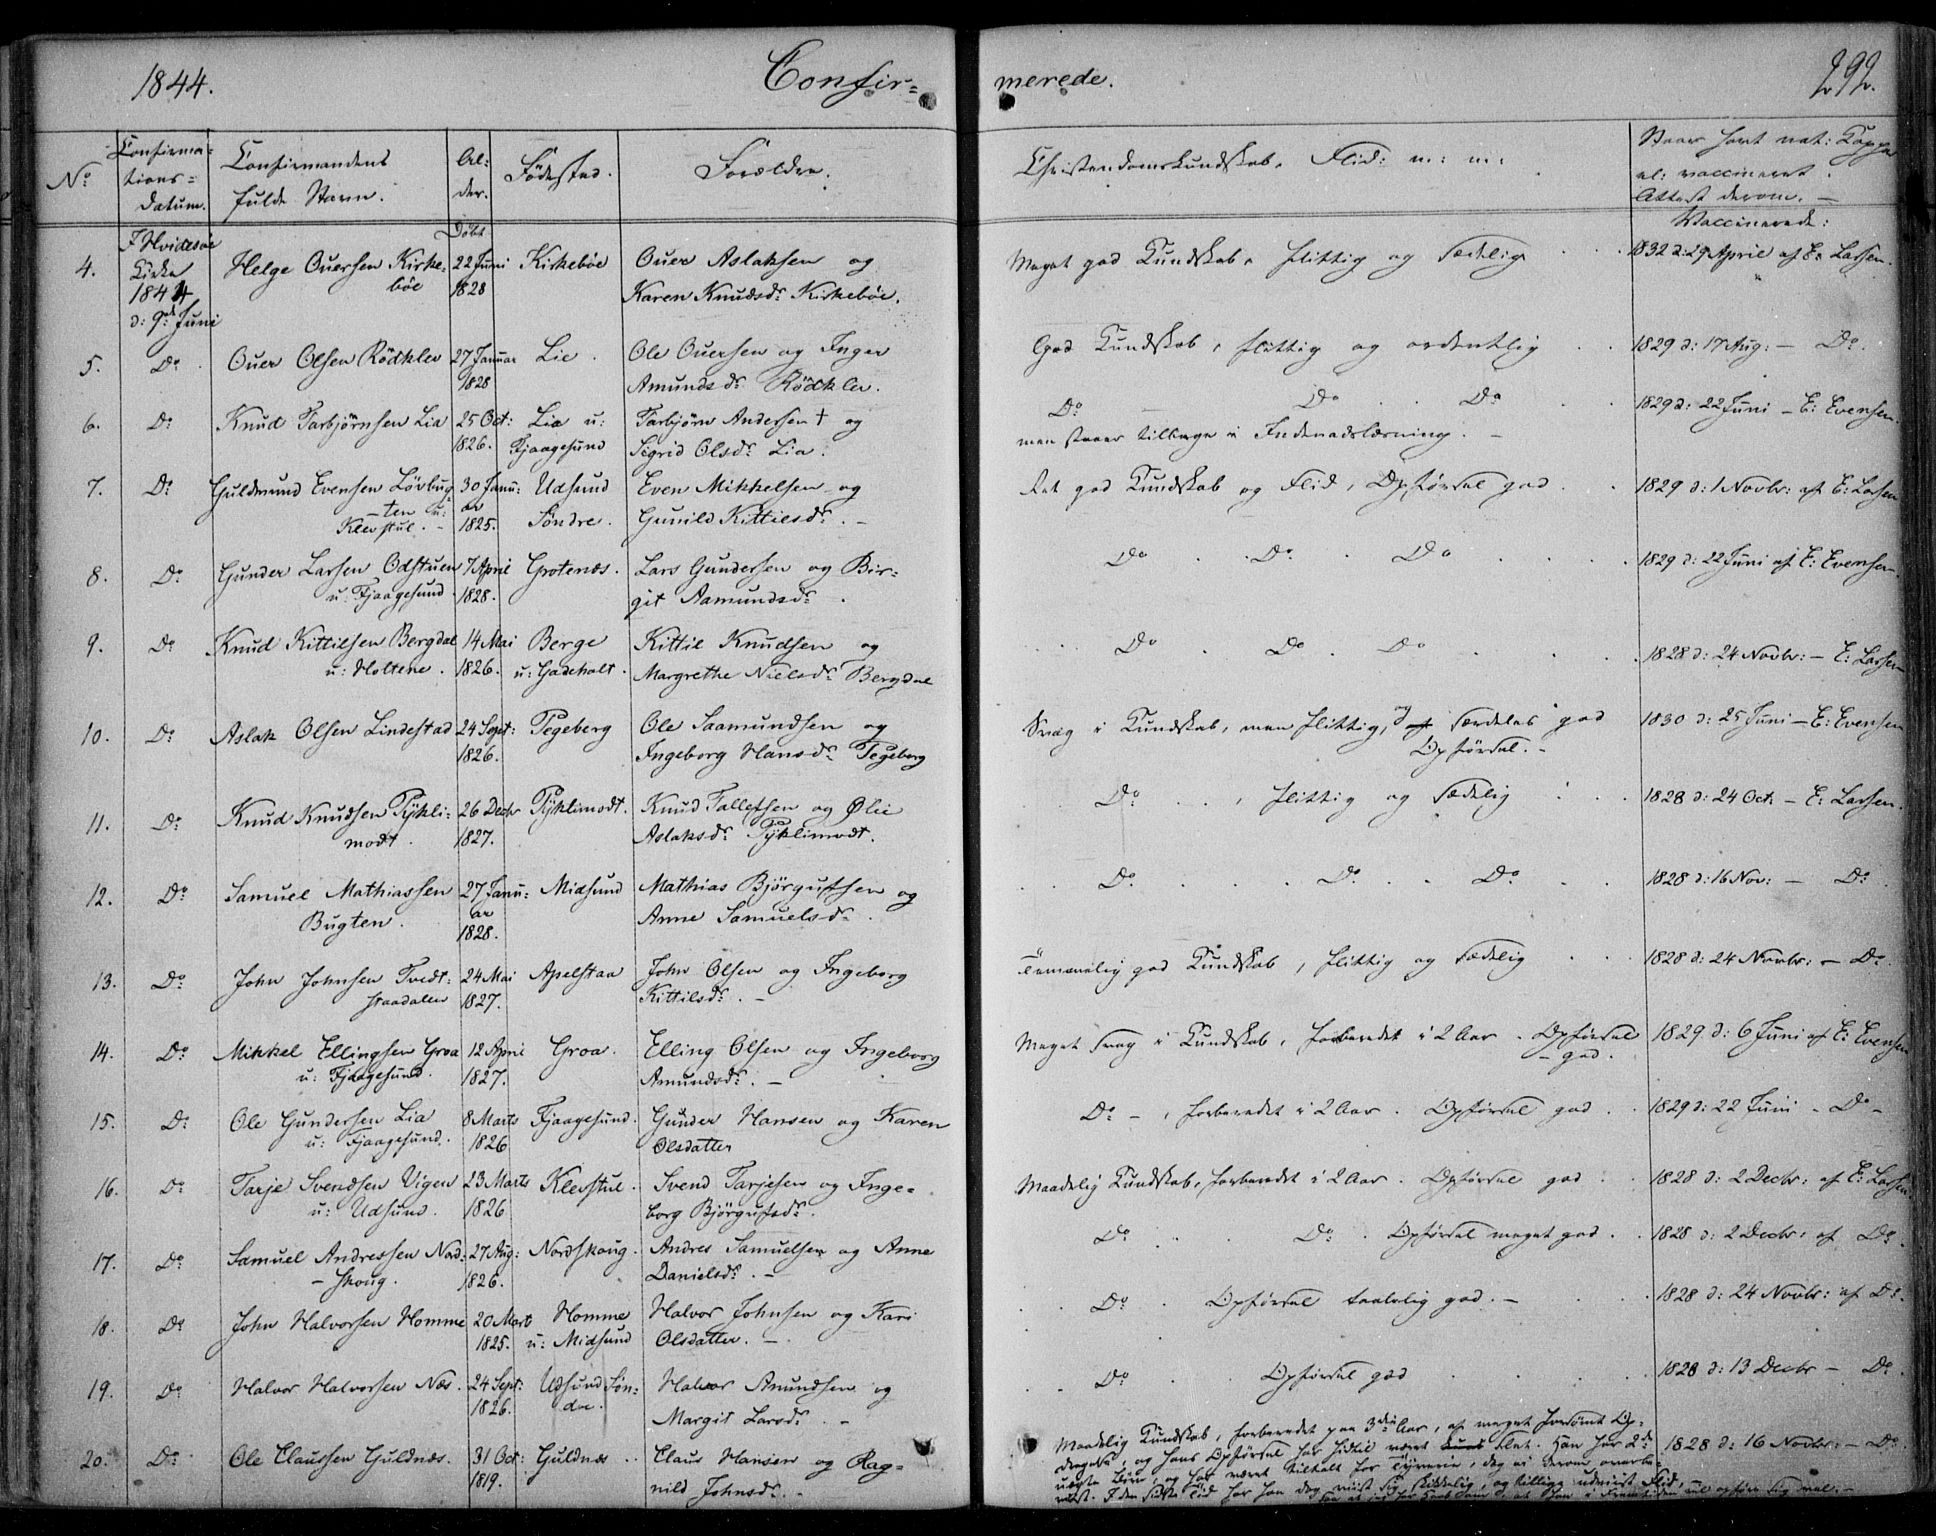 1844. Confir= merede. 292.
No Confirma= tions= Datum. Confirmandens fulde Navn. Al= der. Födested. Forældre. Christendomskundskab, Flid: m: m: Naar havt nat: Kopper el: vaccineret. Attest derom. —
Döbt Vaccinerede:
4. I Hvidesøe Kirke 1844 d: 9de Juni Helge Ouersen Kirke= bøe 22 Juni 1828 Kirkebøe Ouer Aslaksen og Karen Knudsdr Kirkebøe. Meget god Kundskab, flittig og sædelig 1832 d: 29 April af E: Larsen.
5. Do Ouer Olsen Rödklev 27 Januar 1828 Lie. Ole Ouersen og Inger Amundsdr Rödklev. God Kundskab, flittig og ordentlig 1829 d: 17 Aug: — Do.
6. Do Knud Tarbjørnsen Lia 25 Oct: 1826. Lia u: Fjaagesund Tarbjørn Andersen † og Sigrid Olsdr Lia. Do Do Do men staaer tilbage i Indenadslæsning. — 1829 d: 22 Juni — E: Evensen.
7. Do Guldmund Evensen Lövbug= ten u: Klevstul. — 30 Janu: ar 1825. Udsund Söndre. Even Mikkelsen og Gunild Kittilsdr. — Ret god Kundskab og Flid, Opførsel god. 1829 d: 1 Novbr: af E: Larsen
8. Do Gunder Larsen Odstuen u: Fjaagesund 7 April 1828. Grotenæs. Lars Gundersen og Bir= git Aamundsdr. Do Do Do 1829 d: 22 Juni af E: Evensen.
9. Do Knud Kittilsen Bergdal u: Holtene. 14 Mai 1826. Berge u: Gadeholt. Kittil Knudsen og Margrethe Nielsdr Bergdal Do Do Do 1828 d: 24 Novbr: — E: Larsen
10. Do Aslak Olsen Lindestad 24 Sept: 1826. Tegeberg Ole Saamundsen og Ingeborg Hansdr Tegeberg Svag i Kundskab, men flittig, og særdeles god Opførsel. — 1830 d: 25 Juni — E: Evensen
11. Do Knud Knudsen Tykli= modt. 26 Decbr 1827. Tyklimodt. Knud Tallefsen og Ølie Aslaksdr Tyklimodt. Do, flittig og sædelig 1828 d: 24 Oct: — E: Larsen.
12. Do Samuel Mathiassen Bugten. 27 Janu: ar 1828. Midsund Mathias Bjørgufsen og Anne Samuelsdr. Do Do Do 1828 d: 16 Nov: — Do
13. Do John Johnsen Tvedt: staadalen 24 Mai 1827. Apelstaa John Olsen og Ingeborg Kittilsdr. — Temmelig god Kundskab, flittig og sædelig 1828 d: 24 Novbr: — Do.
14. Do Mikkel Ellingsen Groa u: Fjaagesund. 12 April 1827. Groa. Elling Olsen og Ingeborg Amundsdr. — Meget svag i Kundskab, forberedet i 2 Aar. Opførsel god. 1829 d: 6 Juni af E: Evensen
15. Do Ole Gundersen Lia u: Fjaagesund. 8 Marts 1826 Fjaagesund. Gunder Hansen og Karen Olsdatter Do —, forberedet i 2 Aar. Opførsel god 1829 d: 22 Juni — Do —
16. Do Tarje Svendsen Vigen u: Udsund. 23 Marts 1826 Klevstul. Svend Tarjesen og Inge= borg Björgufsdr. Maadelig Kundskab, forberedet i 2 Aar. Opførsel god 1828 d: 2 Decbr: af E: Larsen
17. Do Samuel Andressen Nord= skoug. 27 Aug: 1826. Nordskoug. Andres Samuelsen og Anne Danielsdr. — Do Do. Opførsel meget god 1828 d: 2 Decbr: af Do.
18. Do John Halvorsen Homme 20 Marts 1825. Homme u: Midsund Halvor Johnsen og Kari Olsdatter. — Do Opførsel taalelig god. — 1828 d: 24 Novbr: af Do.
19. Do Halvor Halvorsen Næs. 24 Sept: 1826. Udsund Søn= dre. Halvor Anundsen og Margit Larsdr. — Do Opførsel god 1828 d: 13 Decbr — Do
20. Do Ole Claussen Guldnæs. 31 Oct: 1819. Guldnæs Claus Hansen og Rag= nild Johnsdr. — Maadelig Kundskab, forberedet paa 3die Aar, af meget forsømt Op= dragelse, og hans Opførsel har hidtil været slet. Han har 2de uægte Børn, og har været tiltalt for Tyverie, dog ei derom overbe= vist. I den sidste Tid har han dog viist sig skikkelig, og tillige udviist Flid, 1828 d: 16 Novbr: — Do